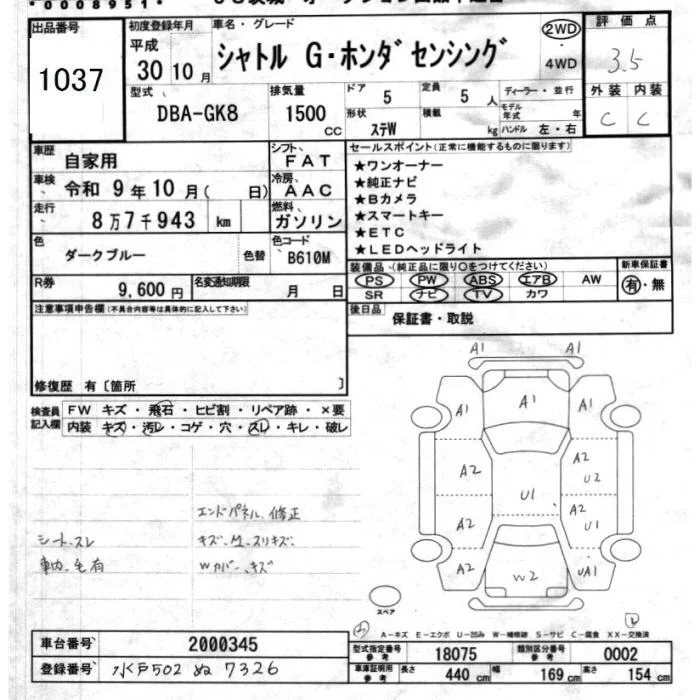 *0008951*
出品番号
1037
初度登録年月
平成
30 10 月
車名・グレード
シャトル G・ホンダセンシング
2WD
・
4WD
評価点
3.5
外装 内装
C C
型式
DBA-GK8
排気量
1500
cc
ドア
5
定員
5 人
形状
ステW
積載
kg
ディーラー・並行
モデル
年式 年
ハンドル 左・右
車歴
自家用
シフト
FAT
車検
令和 9 年 10 月 ( 日)
冷房
AAC
走行
8万7千943 km
燃料
ガソリン
色
ダークブルー
色替
色コード
B610M
R券
9,600 円
名変通知期限
月 日
セールスポイント(正常に機能するものに限ります)
★ワンオーナー
★純正ナビ
★Bカメラ
★スマートキー
★ETC
★LEDヘッドライト
装備品、(純正品に限り○をつけてください)
PS PW ABS エアB AW
SR ナビ TV カワ
新車保証書
有・無
後日品
保証書・取説
注意事項申告欄(不具合内容等は具体的に記入して下さい)
修復歴 有〔箇所 〕
検査員
記入欄
FW キズ・飛石・ヒビ割・リペア跡・×要
内装 キズ・汚レ・コゲ・穴・スレ・キレ・破レ
エンドパネル、修正
シート、スレ
キズ、M、スリキズ、
車内、毛有
Wカバー、キズ
A1 A1
A1 A1 A1
A2 A2 U2
U1
A2 A2 U1
A2 W2 UA1
スペア
A-キズ E-エクボ U-凹み W-補修跡 S-サビ C-腐食 XX-交換済
車台番号
2000345
登録番号
水戸502 ぬ 7326
型式指定番号
参考
18075
類別区分番号
参考
0002
車庫証明用
参考
長さ
440 cm
幅
169 cm
高さ
154 cm